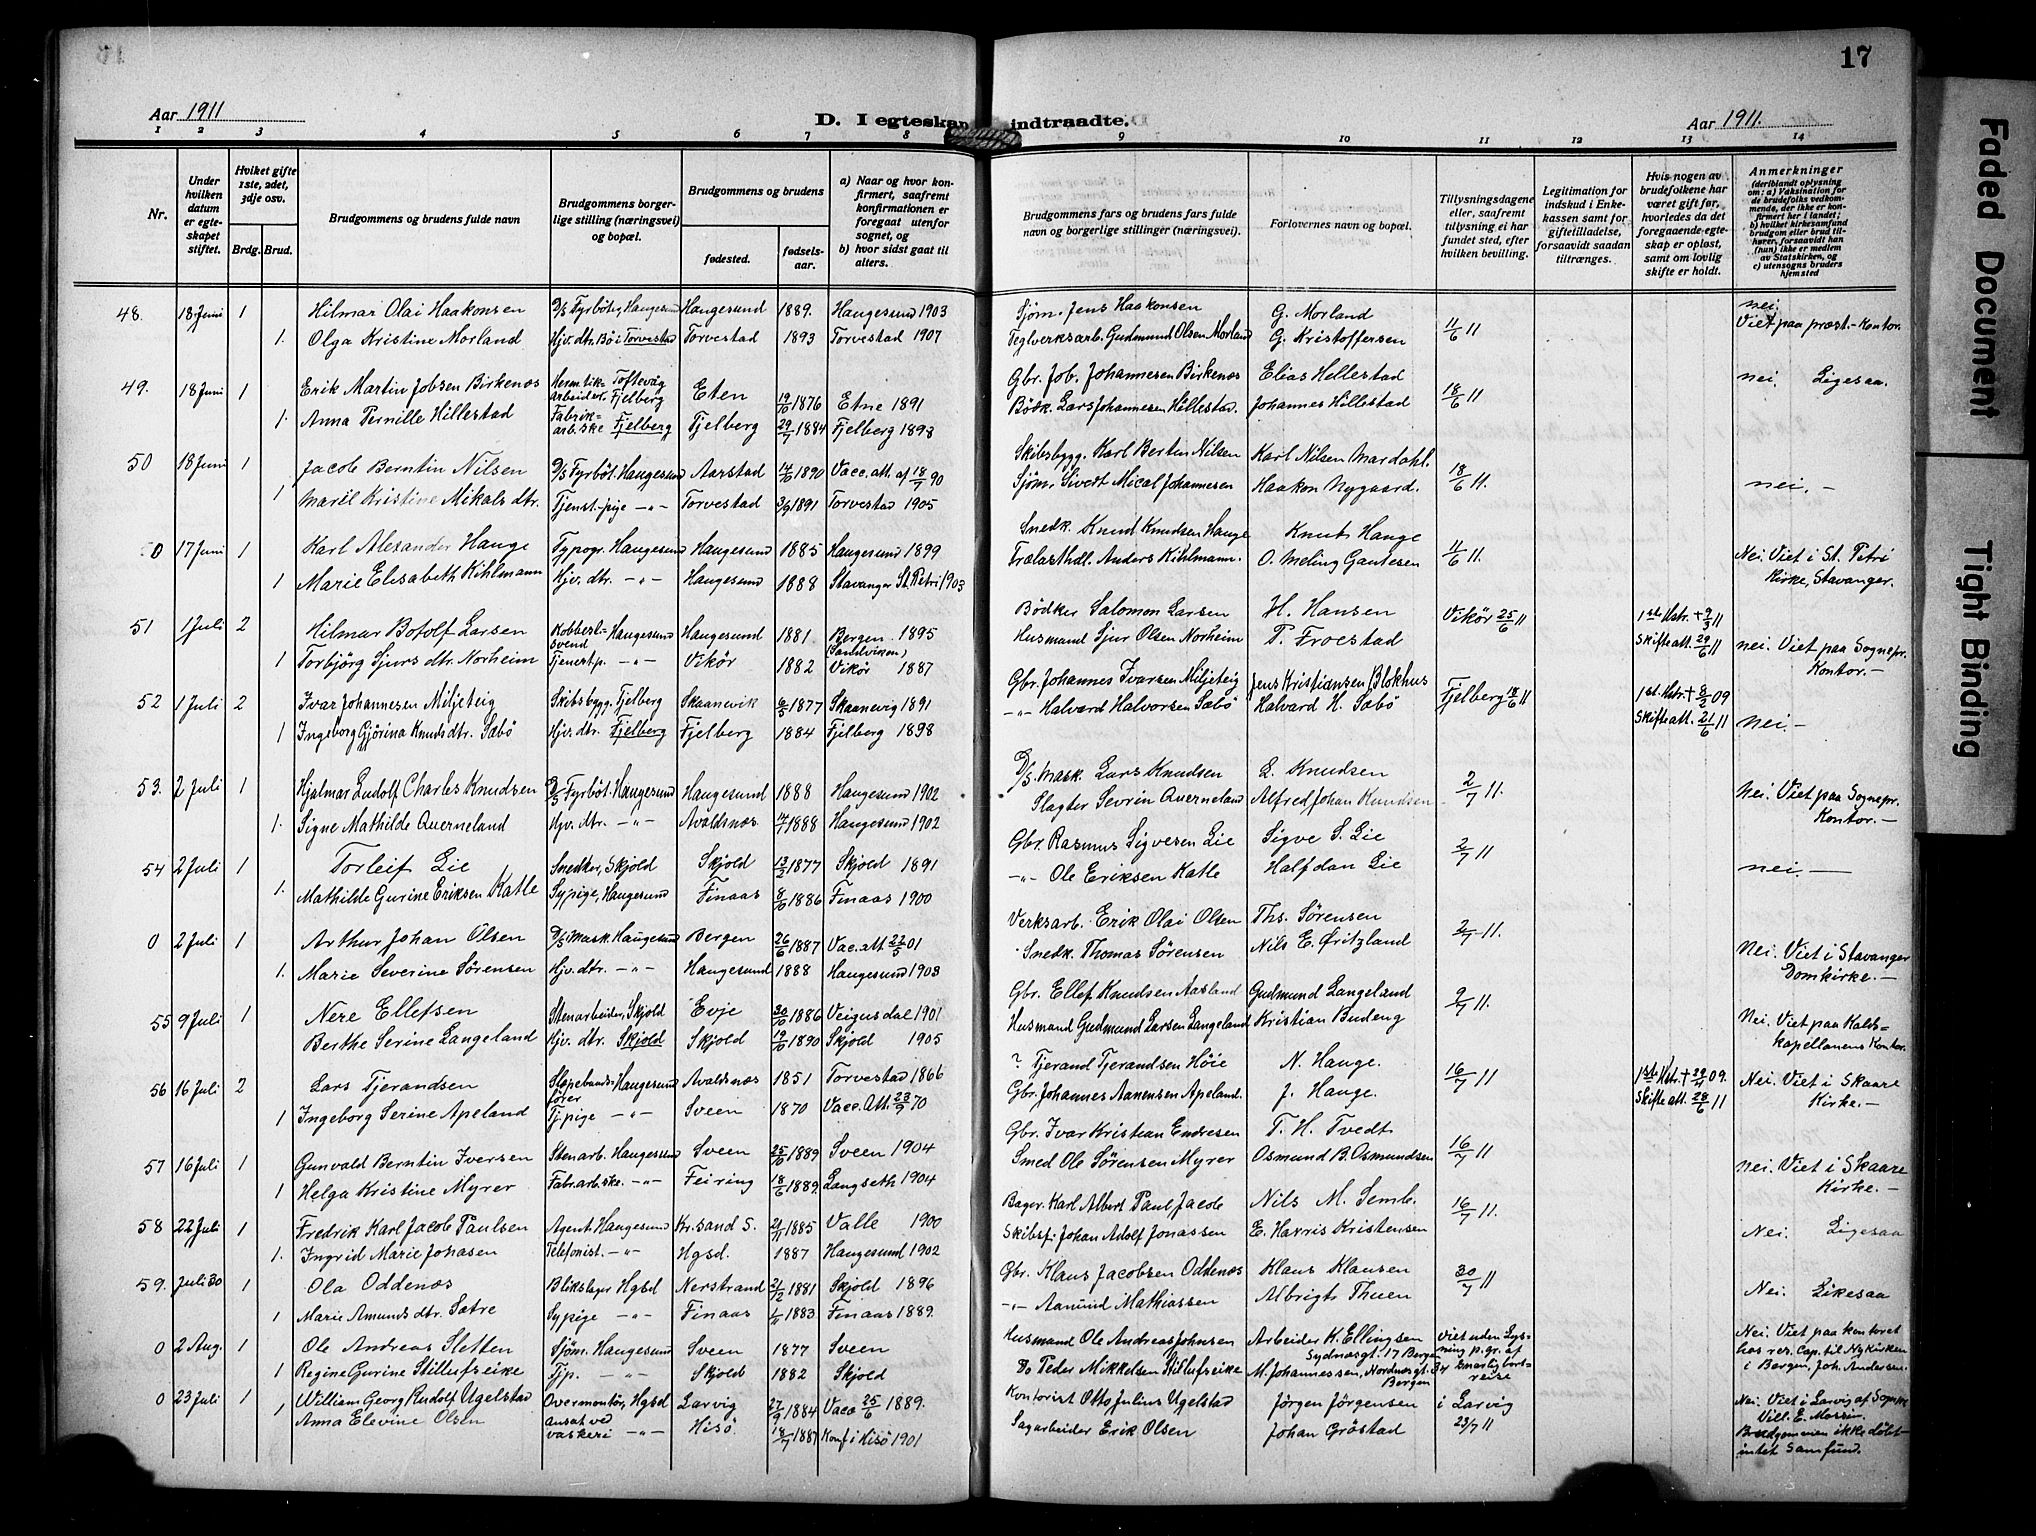 17
Aar 1911
D. I egteskap indtraadte.
Aar 1911.
1 2 3 4 5 6 7 8 9 10 11 12 13 14
Nr.
Under hvilken datum er egteskapet stiftet.
Hvilket gifte 1ste, 2det, 3dje osv.
Brdg. Brud.
Brudgommens og brudens fulde navn
Brudgommens og brudens borgerlige stilling (næringsvei) og bopæl.
Brudgommens og brudens
fødested.
fødselsaar.
a) Naar og hvor konfirmert, saafremt konfirmationen er foregaat utenfor sognet, og
b) hvor sidst gaat til alters.
Brudgommens fars og brudens fars fulde navn og borgerlige stillinger (næringsvei).
Forlovernes navn og bopæl.
Tillysningsdagene eller, saafremt tillysning ei har fundet sted, efter hvilken bevilling.
Legitimation for indskud i Enkekassen samt for giftetilladelse, forsaavidt saadan tiltrænges.
Hvis nogen av brudefolkene har været gift før, hvorledes da det foregaaende egteskap er opløst, samt om lovlig skifte er holdt.
Anmerkninger (deriblandt oplysning om: a) Vaksination for de brudefolks vedkommende, der ikke er konfirmert her i landet; b) hvilket kirkesamfund brudgom eller brud tilhører, forsaavidt han (hun) ikke er medlem av Statskirken, og c) utensogns bruders hjemsted
48. 18 Juni 1 Hilmar Olai Haakonsen D/S Fyrböter, Haugesund Haugesund 1889. Haugesund 1903 Sjøm. Jens Haakonsen G. Morland 11/6 11 nei. Viet paa præst.-Kontor.
1. Olga Kristine Morland Hjv. dtr. Bö i Torvestad Torvestad 1893 Torvestad 1907 Teglverksarb. Gudmund Olsen Morland G. Kristoffersen
49. 18 Juni 1 Erik Martin Jobsen Birkenæs Hermetikarbeider, Toftevåg Fjelberg Eten 19/10 1876 Etne 1891 Gbr. Job. Johannesen Birkenæs Elias Hellestad 18/6 11 nei. Ligesaa.
1. Anna Pernille Hillestad Fabrikarb.ske Fjelberg Fjelberg 29/7 1884 Fjelberg 1898 Bödk. Lars Johannesen Hillestad. Johannes Hillestad
50 18 Juni 1 Jacob Berntin Nilsen D/S Fyrböt. Haugesund Aarstad 14/6 1890 Vacc. att. af 18/7 90 Skibsbygg. Karl Bertin Nilsen Karl Nilsen Mardahl. 18/6 11. nei. -
1 Maril Kristine Mikals dtr. Tjenst.-pige -"- Torvestad 3/9 1891 Torvestad 1905 Sjøm. Sivert Mical Johannesen Haakon Nygaard.
0 17 Juni 1 Karl Alexander Hauge Typogr. Haugesund Haugesund 1885 Haugesund 1899 Snedk. Knud Knudsen Hauge Knut Hauge 11/6 11. Nei. Viet i St. Petri Kirke, Stavanger.
1 Marie Elisabeth Kihlmann Hjv. dtr. -"- Haugesund 1888 Stavanger St. Petri 1903 Trælasthdl. Anders Kihlmann. O. Meling Gautesen
51 1 Juli 2 Hilmar Botolf Larsen Kobbersl.-svend Haugesund Haugesund 1881 Bergen 1895 (Sandviken) Bödker Salomon Larsen H. Hansen Vikör 25/6 11 1ste Hstr. + 9/3 11 Skifte att. 29/6 11 nei. Viet paa Sognepr. Kontor. -
1 Torbjörg Sjurs dtr. Norheim Tjenestp. -"- Vikör 1882 Vikör 1887 Husmand Sjur Olsen Norheim T. Froestad
52 1 Juli 2 Ivar Johannesen Miljeteig Skibsbygg. Fjelberg Skaanevik 6/5 1877 Skaanevig 1891 Gbr. Johannes Ivarsen Miljeteig Jens Kristiansen Blokhus Fjelberg 18/6 11 1st. Hstr. + 8/2 09 Skifte att. 21/6 11 nei. -
1 Ingeborg Gjørina Knuds dtr. Sæbö Hjv. dtr. Fjelberg Fjelberg 1884 Fjelberg 1898 -"- Halvard Halvorsen Sæbö Halvard H. Sæbö
53. 2 Juli 1 Hjalmar Ludolf Charles Knudsen D/S Fyrböt. Haugesund Haugesund 1888 Haugesund 1902 D/S Mask. Lars Knudsen L. Knudsen 2/7 11. Nei. Viet paa Sognepr. Kontor. -
1. Signe Mathilde Querneland Hjv. dtr. -"- Avaldsnæs 14/7 1888 Haugesund 1902 Slagter Sevrin Querneland Alfred Johan Knudsen
54 2 Juli 1 Torleif Lie Snedker, Skjold Skjold 13/2 1877 Skjold 1891 Gbr. Rasmus Sigvesen Lie Sigve S. Lie 2/7 11 nei. -
1. Mathilde Gurine Eriksen Katle Sypige, Haugesund Finaas 8/10 1886 Finaas 1900 -"- Ole Eriksen Katle Halfdan Lie
0 2 Juli 1 Arthur Johan Olsen D/S Mask. Haugesund Bergen 26/6 1887 Vac. att. 22/5 01 Verksarb. Erik Olai Olsen Ths. Sörensen 2/7 11. Nei. Viet i Stavanger Domkirke. -
1. Marie Severine Sørensen Hjv. dtr. -"- Haugesund 1888 Haugesund 1903 Snedk. Thomas Sørensen Nils E. Öritzland
55 9 Juli 1 Nere Ellefsen Stenarbeider, Skjold Evje 30/10 1886 Veigusdal 1901 Gbr. Ellef Knudsen Aasland Gudmund Langeland 9/7 11. Nei. Viet paa Kaldskapellanens Kontor.
Berthe Serine Langeland Hjv. dtr. Skjold Skjold 19/10 1890 Skjold 1905 Husmand Gudmund Larsen Langeland Kristian Budeng
56 16 Juli 2 Lars Tjerandsen Slæpebaadsfører Haugesund Avaldsnæs 1851 Torvestad 1866 ? Tjerand Tjerandsen Höie N. Hauge. 16/7 11 1st. Hstr. + 29/4 09. Skifte att. 28/6 11 Nei. Viet i Skaare Kirke. -
1 Ingeborg Serine Apeland Tjpige -"- Sveen 1870 Vacc. Att. 23/9 70 Gbr. Johannes Aanensen Apeland. J. Hauge.
57 16 Juli 1 Gunvald Berntin Iversen Stenarb. Haugesund Sveen 25/10 1889 Sveen 1904 Gbr. Ivar Kristian Endresen T. H. Tvedt 16/7 11 nei. Viet i Skaare Kirke. -
1 Helga Kristine Myrer Fabr.arb.ske. -"- Feiring 18/6 1889. Langseth 1904 Smed Ole Sørensen Myrer Osmund B. Osmundsen
58 22 Juli 1 Fredrik Karl Jacob Paulsen Agent. Haugesund Kr.sand S. 21/11 1885 Valle 1900 Bager. Karl Albert Paul Jacob Nils M. Semb. 16/7 11. Nei. Ligesaa
1. Ingrid Marie Jonasen Telefonist. -"- Hgsd. 1887 Haugesund 1902 Skibsf. Johan Adolf Jonassen E. Harris Kristensen
59. Juli 30 1 Ola Oddenæs Blikslager Hgsd Nerstrand 21/12 1881 Skjold 1896 Gbr. Klaus Jacobsen Oddenæs Klaus Klausen 30/7 11 Nei. Likesaa
1 Marie Amunds dtr. Sætre Sypige -"- Finaas 1/11 1883 Finaas 1889. -"- Aamund Mathiassen Albrigt Thuen
0 2 Aug. 1 Ole Andreas Sletten Sjøm. Haugesund Sveen 1877 Sveen Husmand Ole Andreas Johnsen Arbeider K. Ellingsen Sydnæsgt. 17 Bergen Viet uden Lysning p. gr. af snarlig bortreise Nei. Viet paa kontoret hos res. Cap. til Nykirken i Bergen, Joh. Andersen.
1 Regine Gurine Stillufseike Tjp. -"- Skjold 1882 Skjold Do Peder Mikkelsen Stillufseike M. Johannessen, Nordnæsgt. 34 Bergen
0 23 Juli 1 William Georg Rudolf Ugelstad Overmontør, Hgsd Larvig 27/9 1884 Vacc 25/6 1889. Kontorist Otto Julius Ugelstad Jörgen Jörgensen i Larvig 23/7 11 Nei. Viet i Larvig af Sognepr. Vill. E. Massin. Brudgommen ikke döbt intet Samfund.
1 Anna Elevine Olsen ansat ved vaskeri -"- Hisö. 18/7 1887 Konf. i Hisö 1901 Sagarbeider Erik Olsen Johan Gröstad
Faded Document
Tight Binding